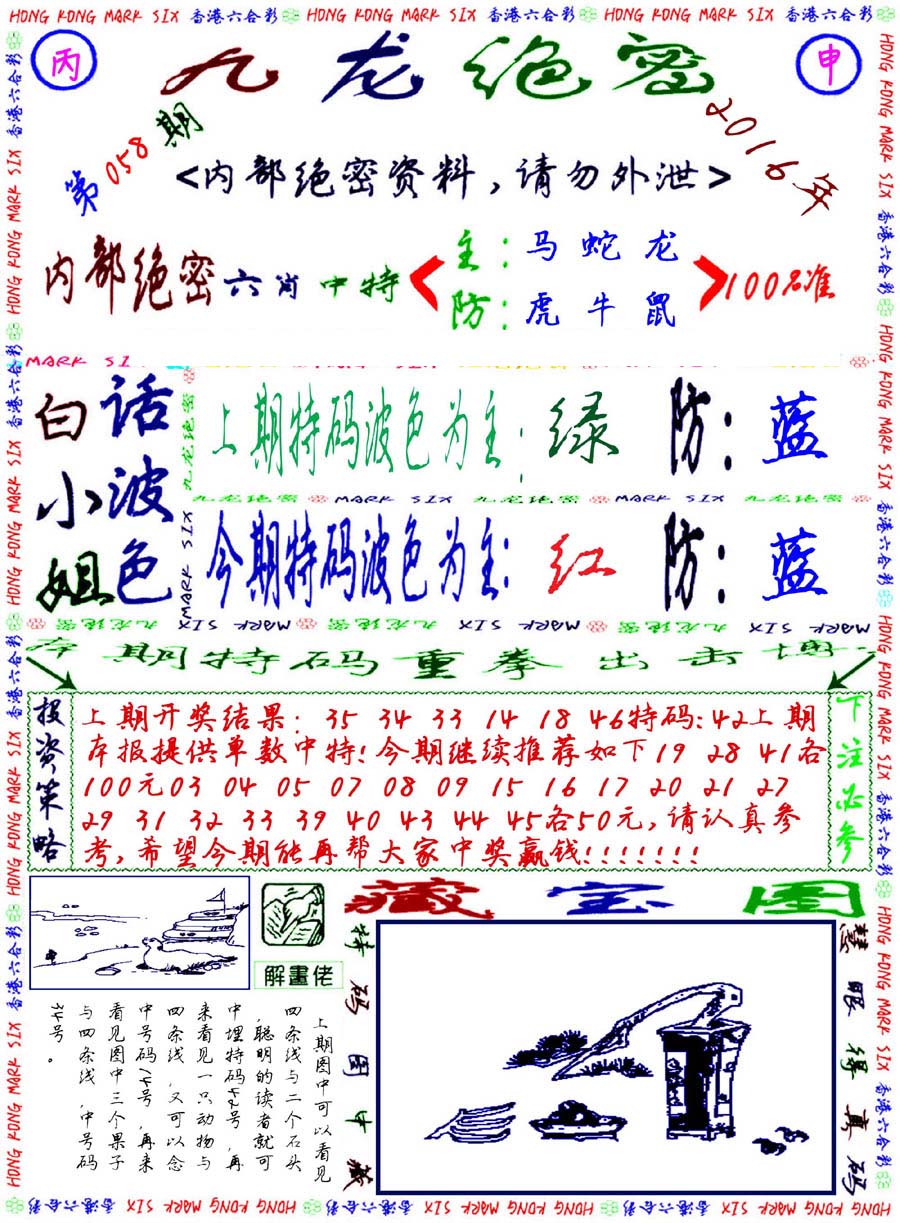 HONG KONG MARK SIX 香港六合彩 HONG KONG MARK SIX 香港六合彩 HONG KONG MARK SIX 香港六合彩
丙
九龙绝密
申
第058期
2016年
<内部绝密资料,请勿外泄>
内部绝密六肖中特
主:马蛇龙
防:虎牛鼠
100%准
白话
小波
姐色
上期特码波色为主:绿 防:蓝
九龙绝密 MARK SIX 九龙绝密 MARK SIX 九龙绝密
今期特码波色为主:红 防:蓝
MARK SIX 九龙绝密 MARK SIX 九龙绝密 MARK SIX 九龙绝密
本期特码重拳出击博
投资策略
上期开奖结果:35 34 33 14 18 46特码:42上期
本报提供单数中特!今期继续推荐如下19 28 41各
100元03 04 05 07 08 09 15 16 17 20 21 27
29 31 32 33 39 40 43 44 45各50元,请认真参
考,希望今期能再帮大家中奖赢钱!!!!!!!
下注必参
藏宝图
解畫佬
特码图中藏
慧眼得真码
上期图中可以看见
四条线与二个石头
,聪明的读者就可
中埋特码42号,再
来看见一只动物与
四条线,又可以念
中号码14号,再来
看见图中三个果子
与四条线,中号码
34号。
HONG KONG MARK SIX 香港六合彩 HONG KONG MARK SIX 香港六合彩 HONG KONG MARK SIX 香港六合彩